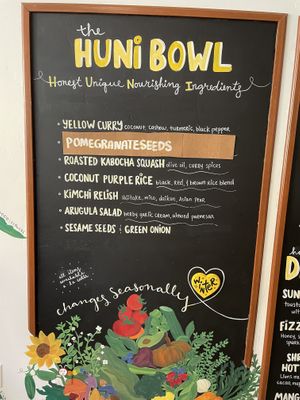 the
HUNi BOWL
Honest Unique Nourishing Ingredients
• YELLOW CURRY coconut, cashew, turmeric, black pepper
POMEGRANATE SEEDS
• ROASTED KABOCHA SQUASH olive oil, curry spices
• COCONUT PURPLE RICE black, red, & brown rice blend
• KIMCHI RELISH daikon, asian pear
• ARUGULA SALAD herby garlic cream, almond parmesan
• SESAME SEEDS & GREEN ONION
all items
available
changes Seasonally
WiNTER
FIZZ
SHR
HOT
MANG